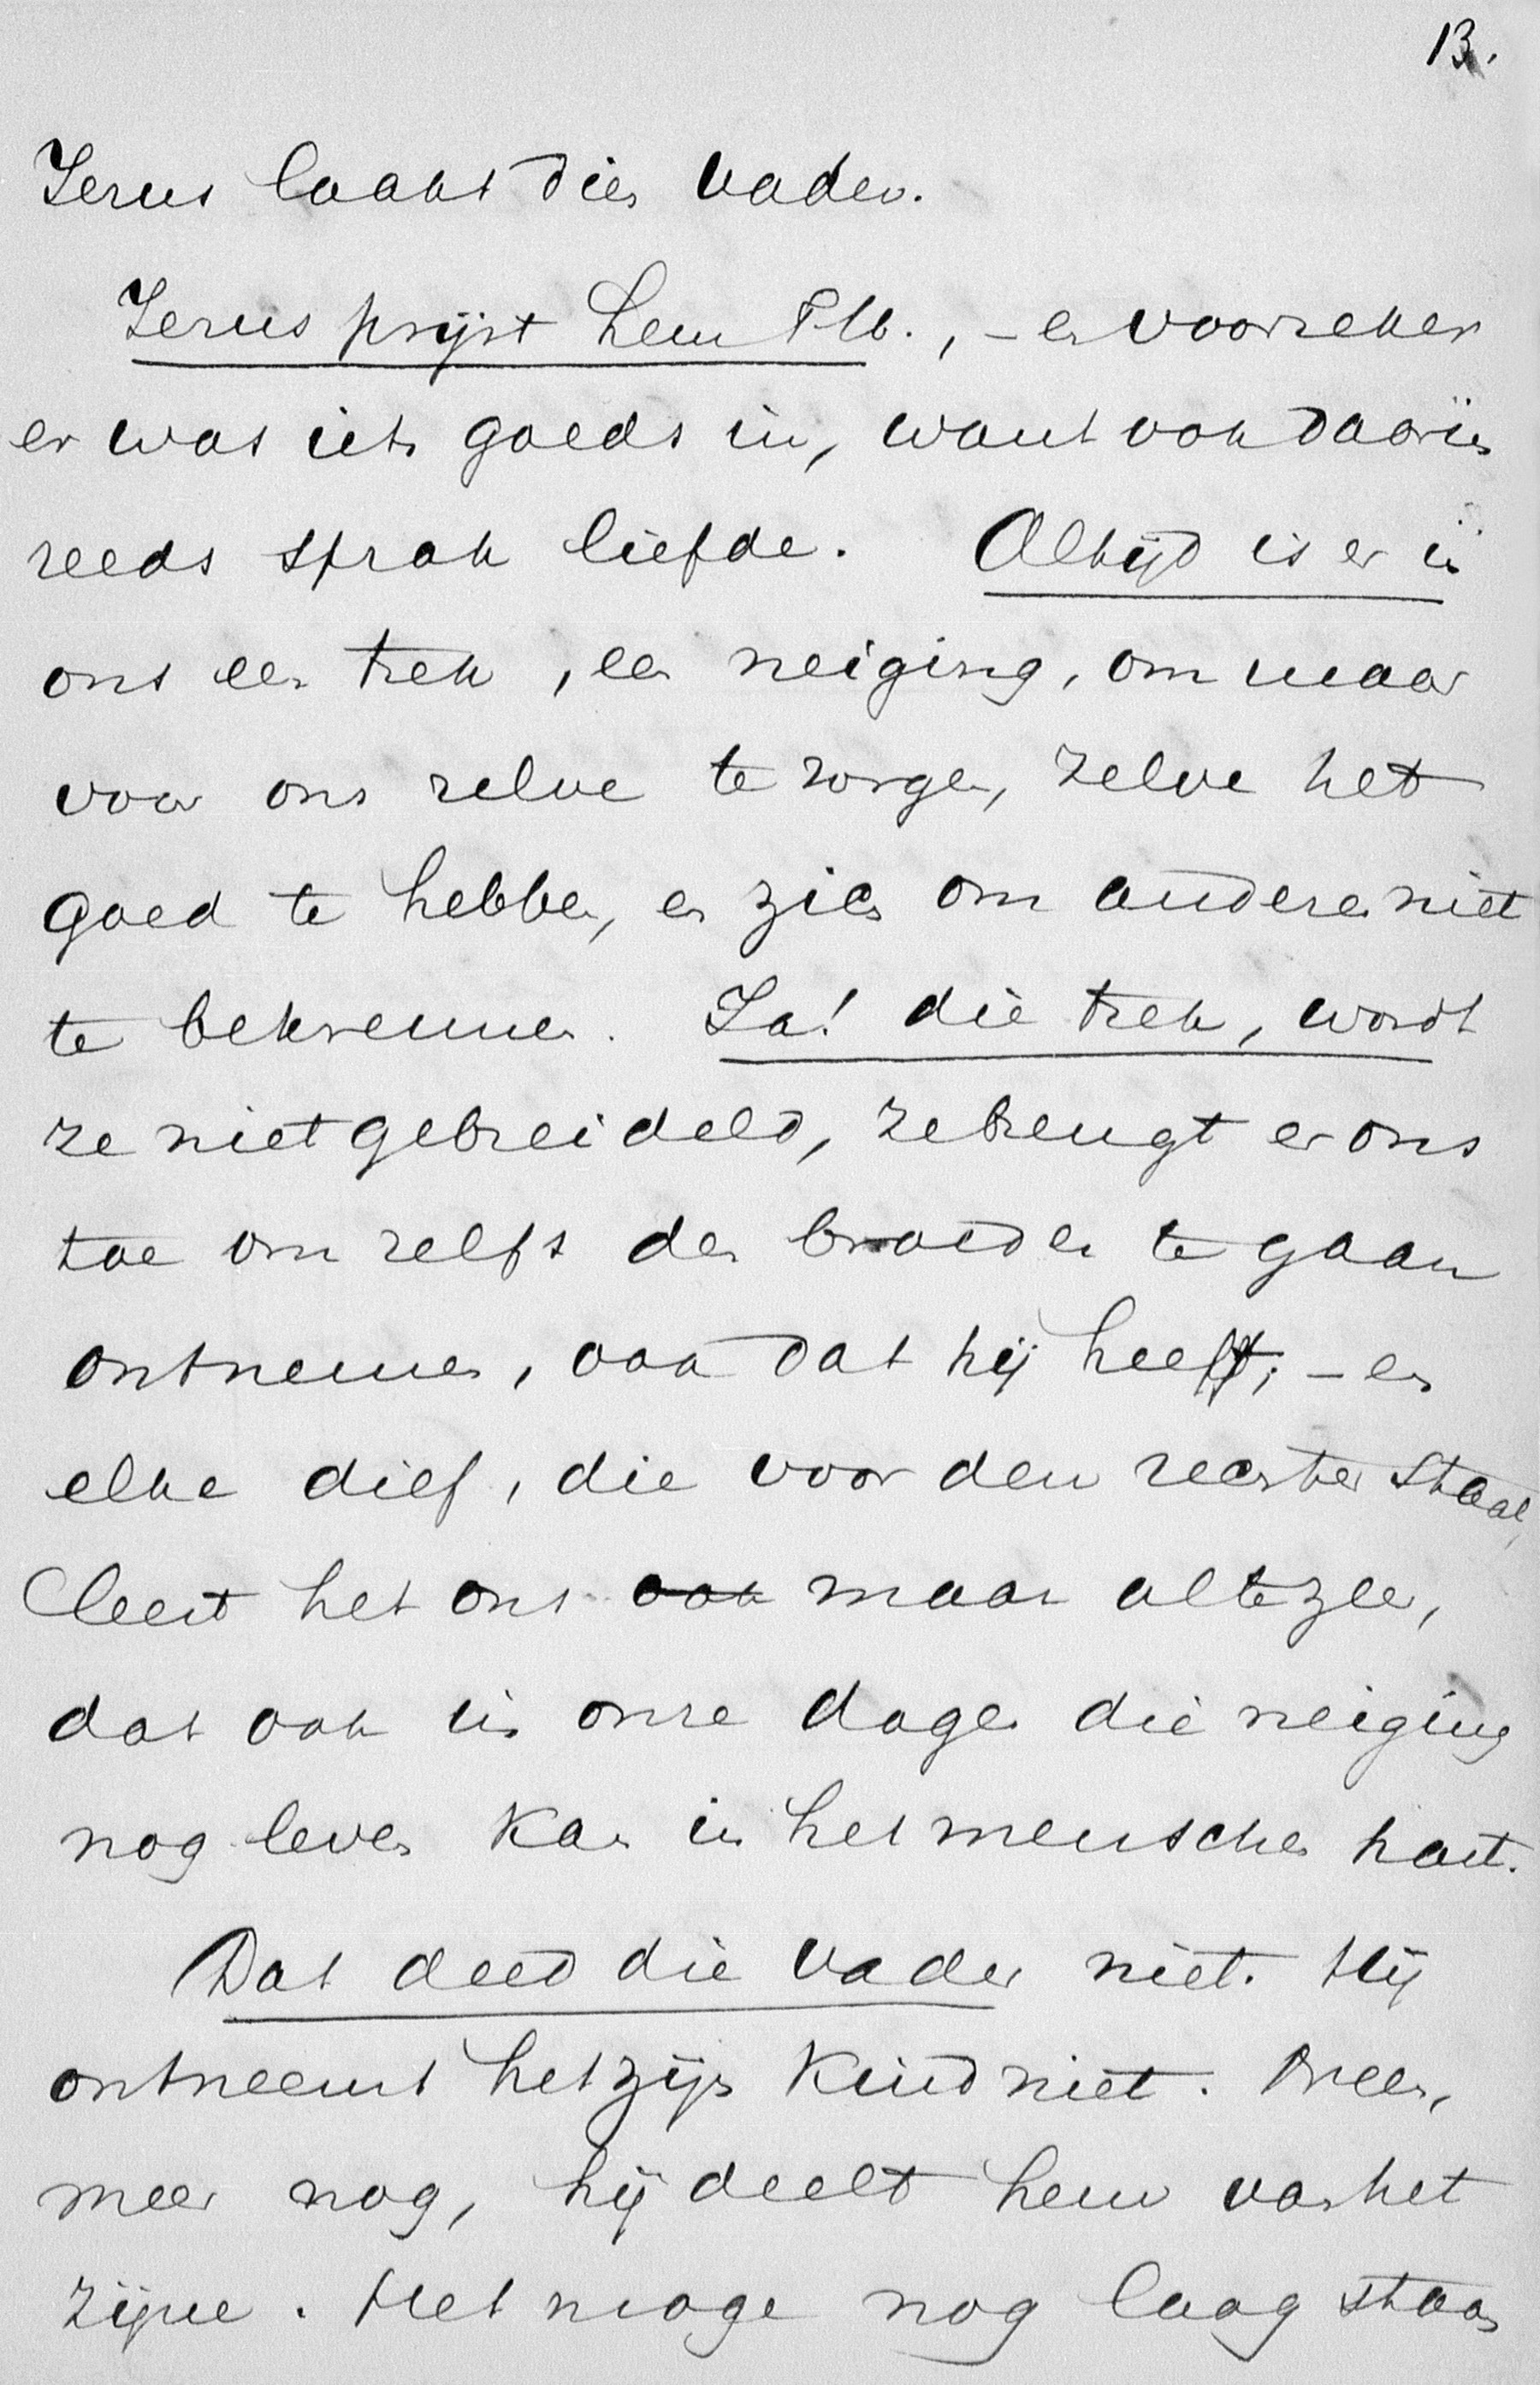 13.
Jezus laakt dien vader.
Jezus prijst hem M.M., – en voorzeker
er was iets goeds in, want ook daarin
reeds sprak liefde. Altijd is er in
ons een trek, een neiging, om maar
voor ons zelve te zorgen, zelve het
goed te hebben, en zich om anderen niet
te bekreunen. Ja! die trek, wordt
ze niet gebreideld, ze brengt er ons
toe om zelfs den broeder te gaan
ontnemen, ook dat hij heeft; – en
elke dief, die voor den rechter staat,
leert het ons ook maar al te zeer,
dat ook in onze dagen die neiging
nog leven kan in het menschen hart.
Dat deed die vader niet. Hij
ontneemt het zijn kind niet. Neen,
meer nog, hij deelt hem van het
zijne. Het moge nog laag staan